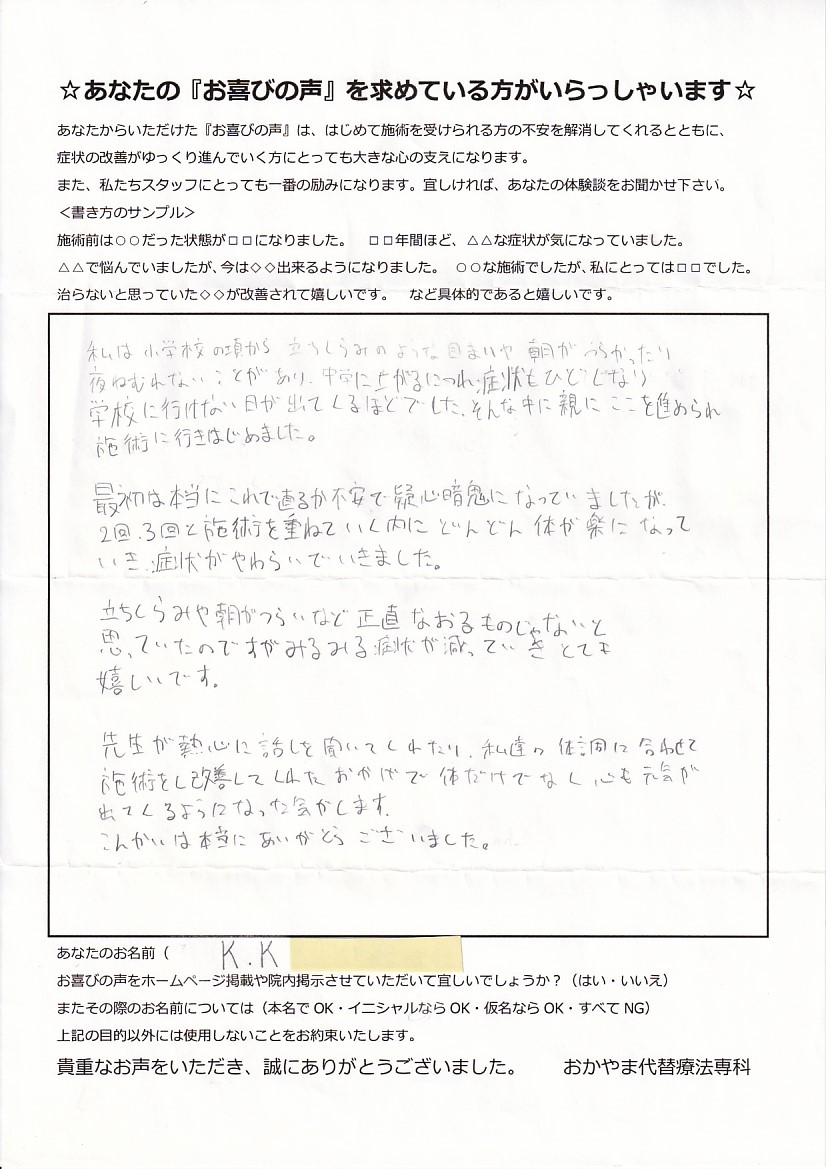 ☆あなたの『お喜びの声』を求めている方がいらっしゃいます☆
あなたからいただけた『お喜びの声』は、はじめて施術を受けられる方の不安を解消してくれるとともに、
症状の改善がゆっくり進んでいく方にとっても大きな心の支えになります。
また、私たちスタッフにとっても一番の励みになります。宜しければ、あなたの体験談をお聞かせ下さい。
＜書き方のサンプル＞
施術前は○○だった状態が□□になりました。　□□年間ほど、△△な症状が気になっていました。
△△で悩んでいましたが、今は◇◇出来るようになりました。　○○な施術でしたが、私にとっては□□でした。
治らないと思っていた◇◇が改善されて嬉しいです。　など具体的であると嬉しいです。
私は小学校の頃から 立ちくらみのような目まいや 朝がつらかったり
夜ねむれないことがあり、中学に上がるにつれ症状もひどくなり
学校に行けない日が出てくるほどでした、そんな中に親にここを進められ
施術に行きはじめました。
最初は本当にこれで直るか不安で疑心暗鬼になっていましたが、
2回、3回と施術を重ねていく内にどんどん体が楽になって
いき、症状がやわらいでいきました。
立ちくらみや朝がつらいなど正直なおるものじゃないと
思っていたのですがみるみる症状が減っていきとても
嬉しいです。
先生が熱心に話しを聞いてくれたり、私達の体調に合わせて
施術をし改善してくれたおかげで体だけでなく心も元気が
出てくるようになった気がします。
こんかいは本当にありがとうございました。
あなたのお名前（　K.K
お喜びの声をホームページ掲載や院内掲示させていただいて宜しいでしょうか？（はい・いいえ）
またその際のお名前については（本名でOK・イニシャルならOK・仮名ならOK・すべてNG）
上記の目的以外には使用しないことをお約束いたします。
貴重なお声をいただき、誠にありがとうございました。　おかやま代替療法専科